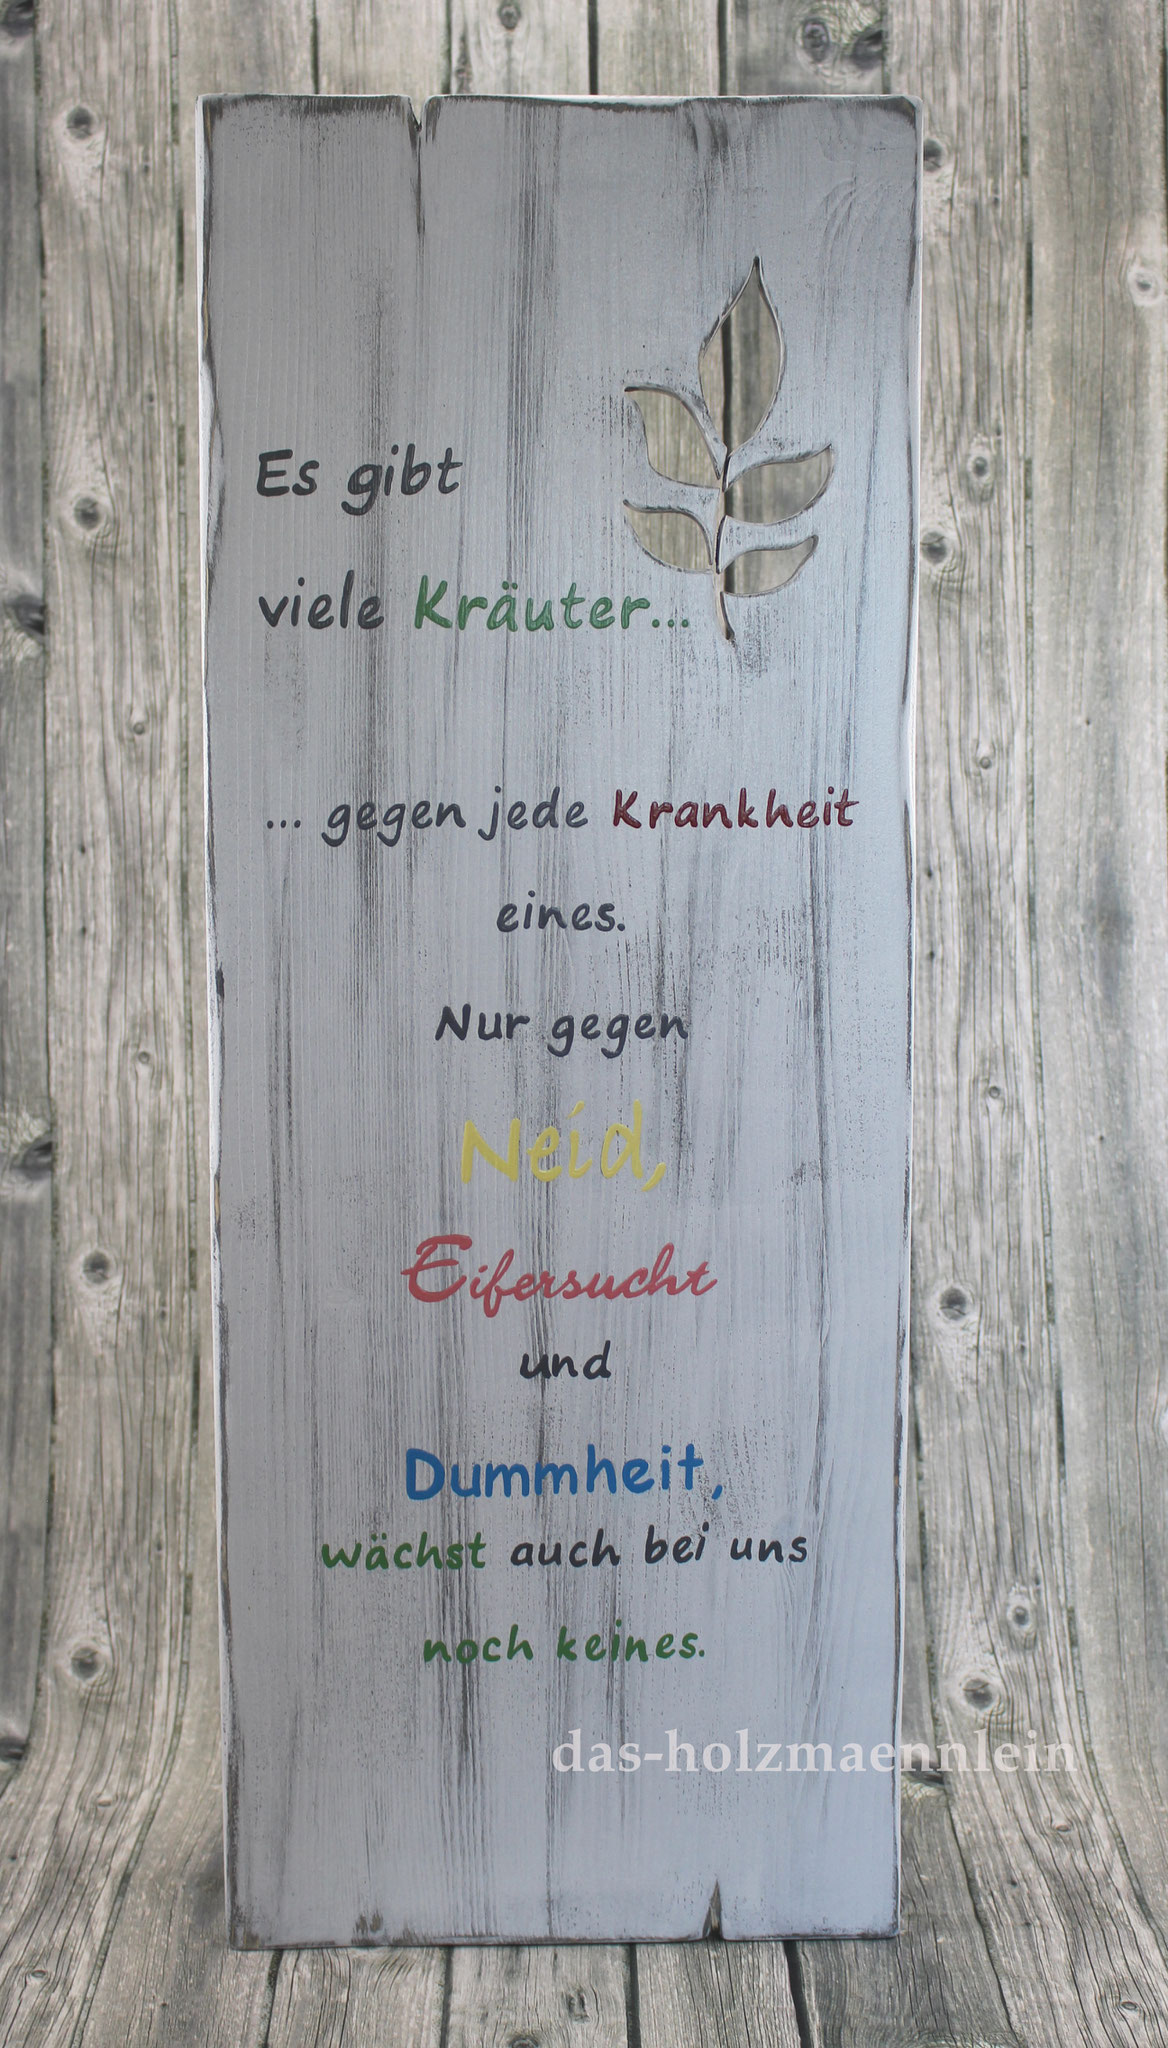 Es gibt
viele Kräuter...
... gegen jede Krankheit
eines.
Nur gegen
Neid,
Eifersucht
und
Dummheit,
wächst auch bei uns
noch keines.
das-holzmaennlein